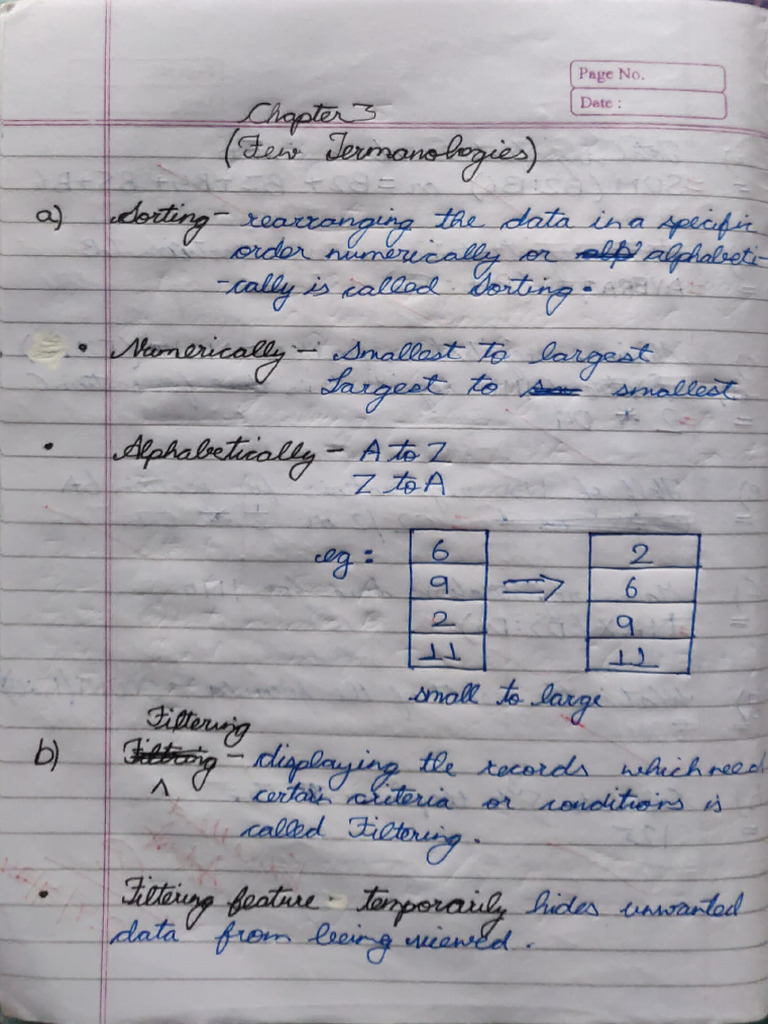 Page No.
Date :
Chapter 3
(Few Termanologies)
a) Sorting - rearranging the data in a specific
order numerically or alphabeti-
-cally is called Sorting.
• Numerically - Smallest to largest
Largest to smallest
• Alphabetically - A to Z
Z to A
eg : 6 2
9 ⇒ 6
2 9
11 11
small to large
Filtering
b) ^ - displaying the records which need
certain criteria or conditions is
called Filtering.
• Filtering feature - temporarily hides unwanted
data from being viewed.